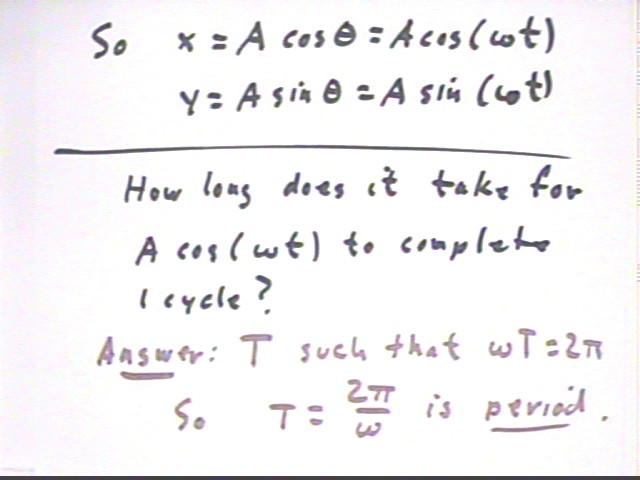 So x = A cos θ = A cos(ωt)
y = A sin θ = A sin (ωt)
How long does it take for
A cos(ωt) to complete
1 cycle?
Answer: T such that ωT = 2π
So T = 2π/ω is period.